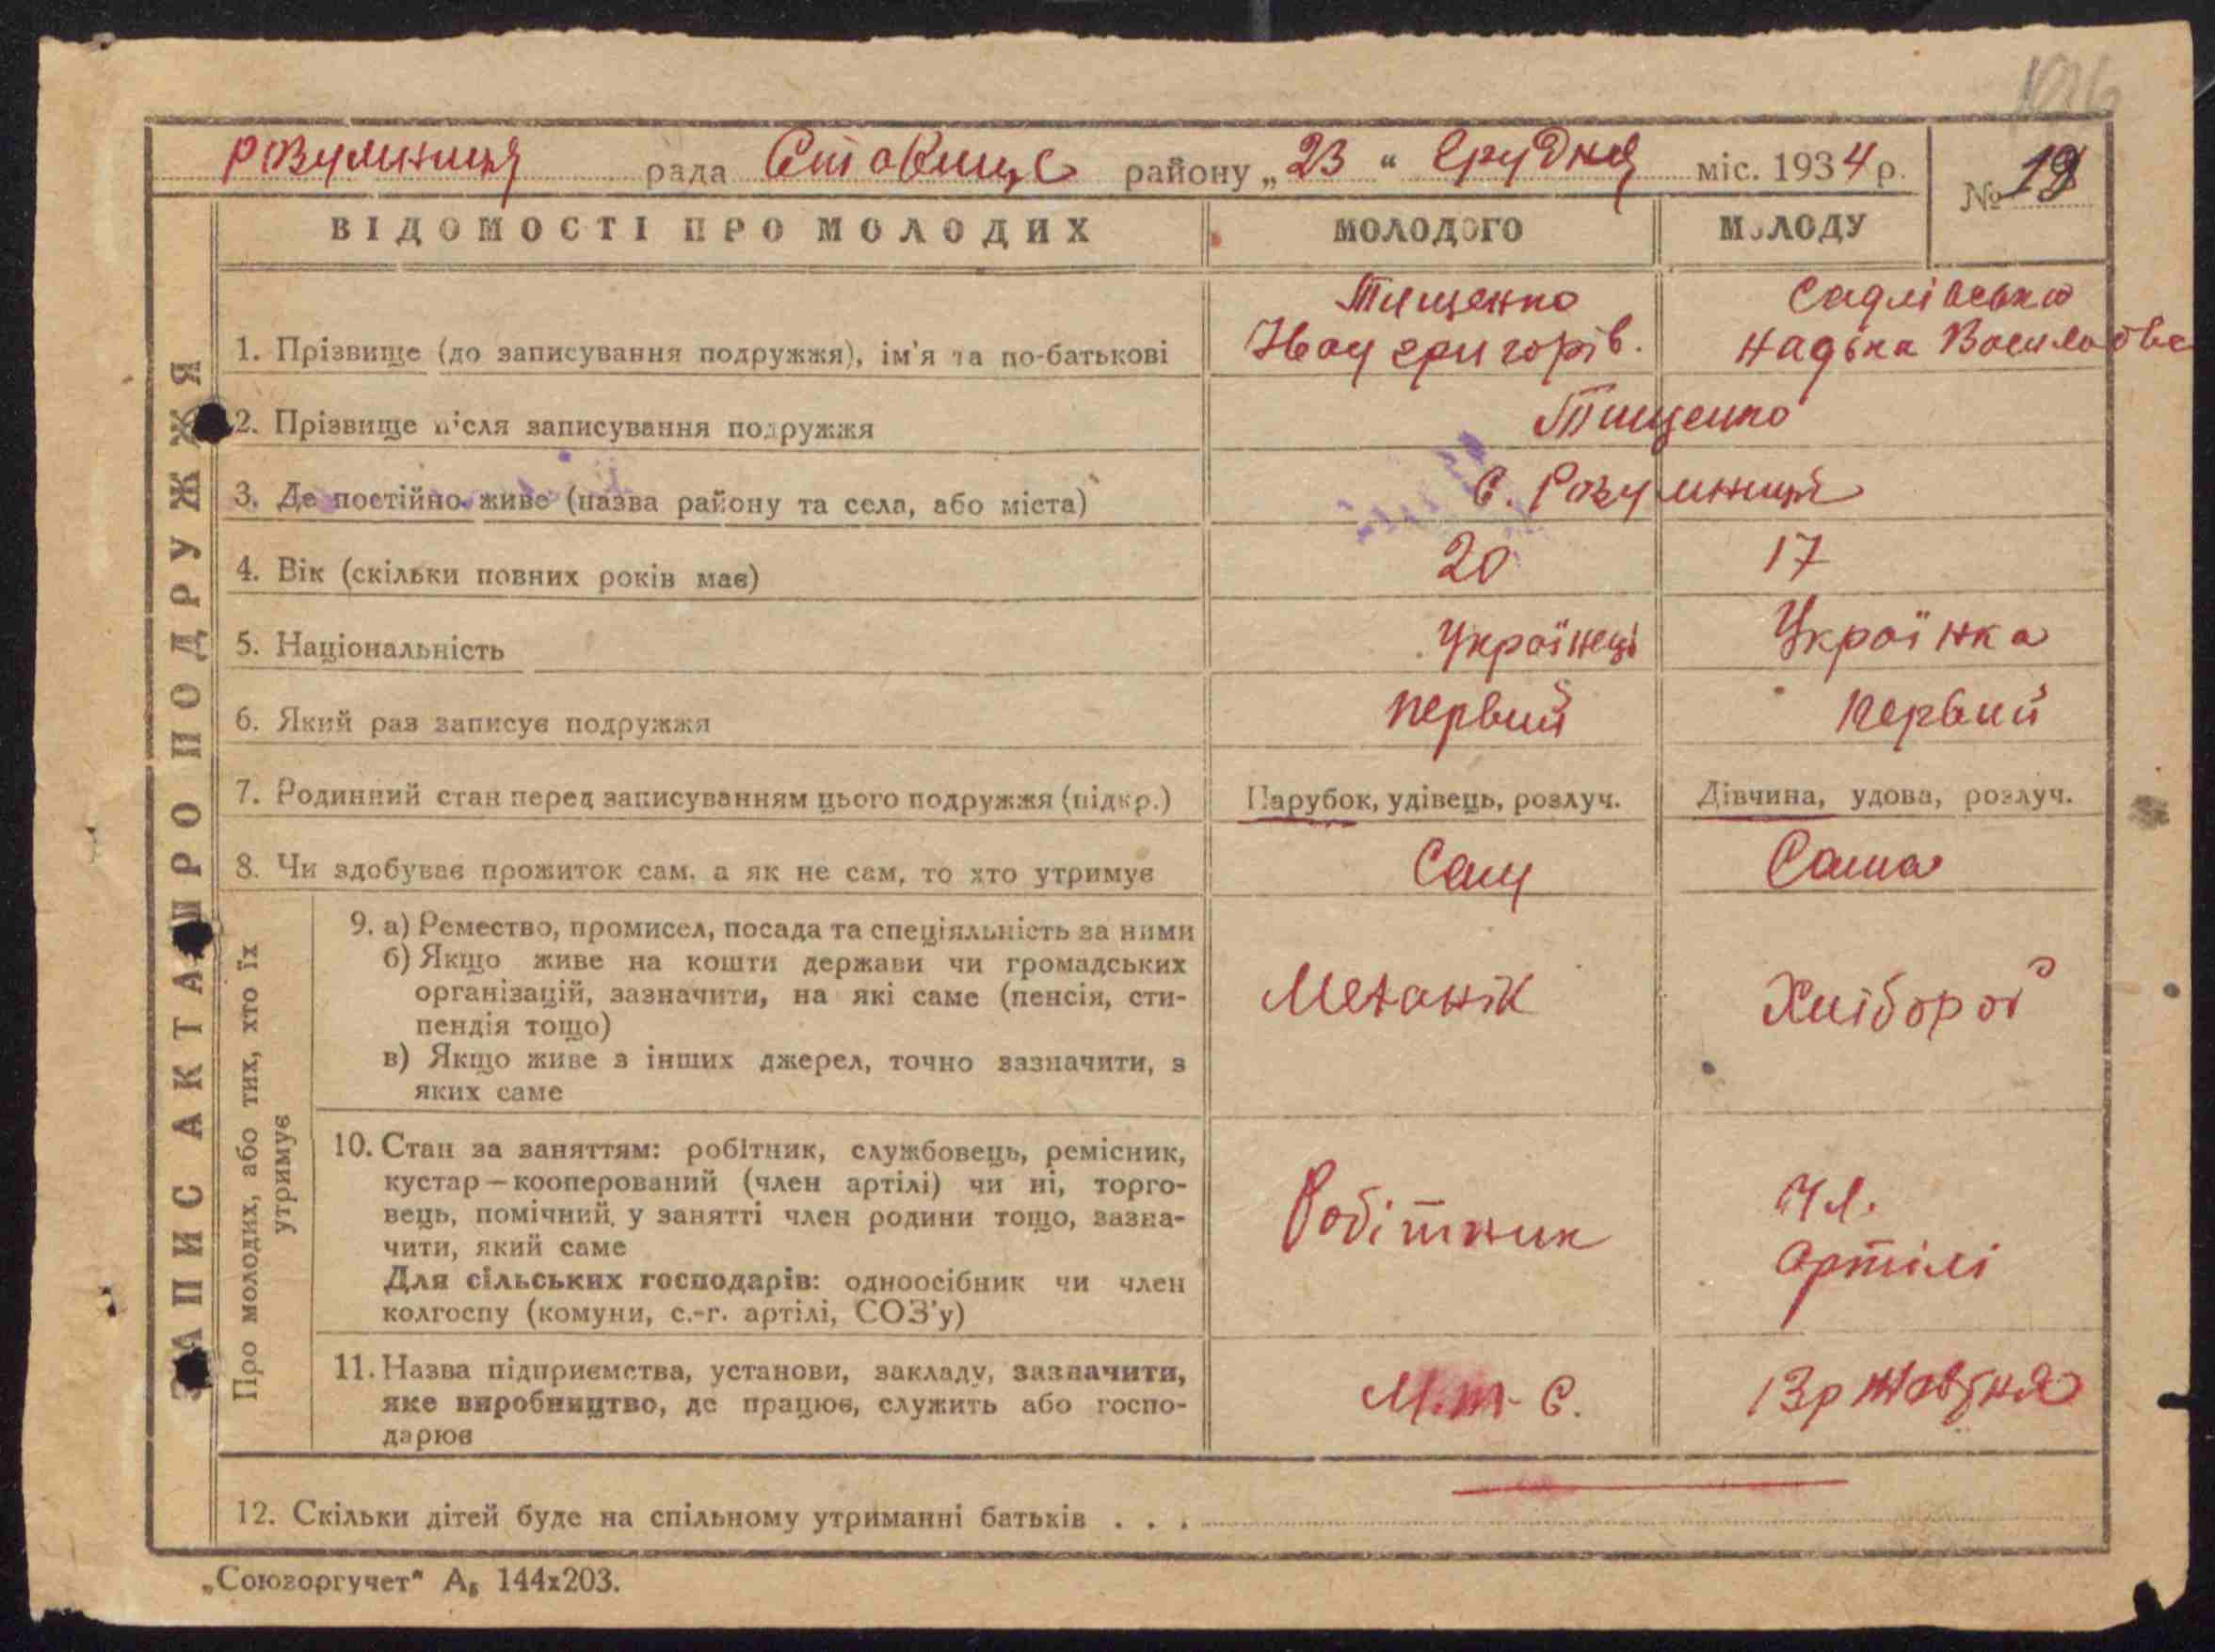 Розумниця рада Ставище району „23“ грудня міс. 1934 р. № 19
ВІДОМОСТІ ПРО МОЛОДИХ МОЛОДОГО МОЛОДУ
1. Прізвище (до записування подружжя), ім'я та по-батькові Тищенко Садлівська
Григорів. Надька Василівва
2. Прізвище після записування подружжя Тищенко
3. Де постійно живе (назва району та села, або міста) С. Розумниця
4. Вік (скільки повних років має) 20 17
5. Національність Українець Українка
6. Який раз записує подружжя первий первий
7. Родинний стан перед записуванням цього подружжя (підкр.) Парубок, удівець, розлуч. Дівчина, удова, розлуч.
8. Чи здобуває прожиток сам, а як не сам, то хто утримує Сам Сама
ЗАПИС АКТА ПРО ПОДРУЖЖЯ
Про молодих, або тих, хто їх
утримує
9. а) Ремество, промисел, посада та спеціяльність за ними
б) Якщо живе на кошти держави чи громадських
організацій, зазначити, на які саме (пенсія, сти-
пендія тощо)
в) Якщо живе з інших джерел, точно зазначити, з
яких саме
Механік Хлібороб
10. Стан за заняттям: робітник, службовець, ремісник,
кустар—кооперований (член артілі) чи ні, торго-
вець, помічний у занятті член родини тощо, зазна-
чити, який саме
Для сільських господарів: одноосібник чи член
колгоспу (комуни, с.-г. артілі, СОЗ'у)
Робітник Чл.
артілі
11. Назва підприємства, установи, закладу, зазначити,
яке виробництво, де працює, служить або госпо-
дарює
М.т-С. 13р Жовтня
12. Скільки дітей буде на спільному утриманні батьків . . .
„Союзоргучет" А₅ 144х203.